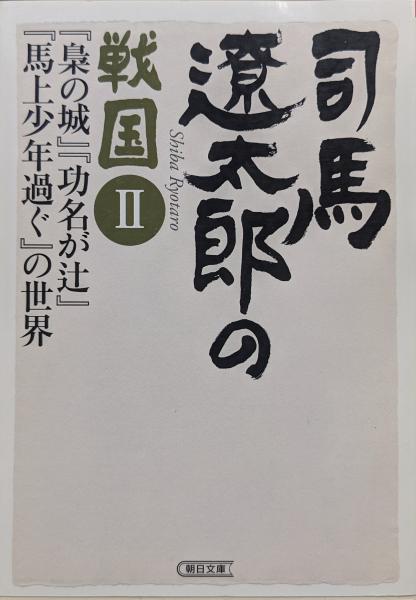 司馬
遼太郎の
Shiba Ryotaro
戦国Ⅱ
『梟の城』『功名が辻』
『馬上少年過ぐ』の世界
朝日文庫